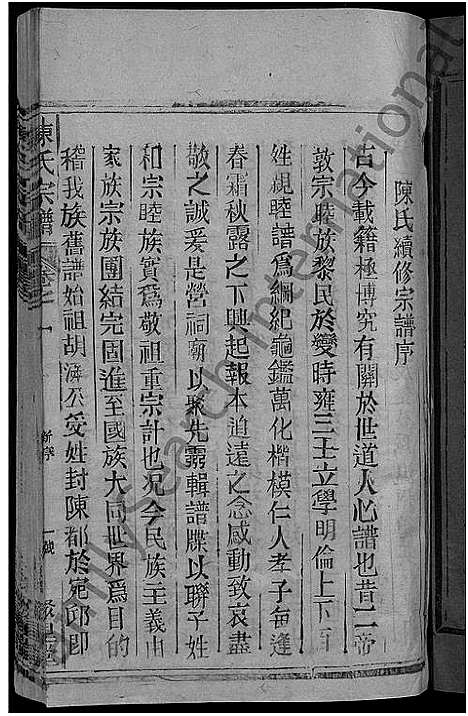 陳氏續修宗譜序
古今載籍極博究有關於世道人心譜也昔二帝
敦宗睦族黎民於變時雍三王立學明倫上下百
姓親睦譜爲綱紀龜鑑萬化楷模仁人孝子每逢
春霜秋露之下興起報本追遠之念感動致哀盡
敬之誠爰是營祠廟以聚先靈輯譜牒以聯子姓
和宗睦族實爲敬祖重宗計也况今民族主義由
家族宗族團結完固進至國族大同世界爲目的
稽我族舊譜始祖胡滿公受姓封陳都於宛邱即
陳氏宗譜
卷之一
新序
一
FamilySearch International